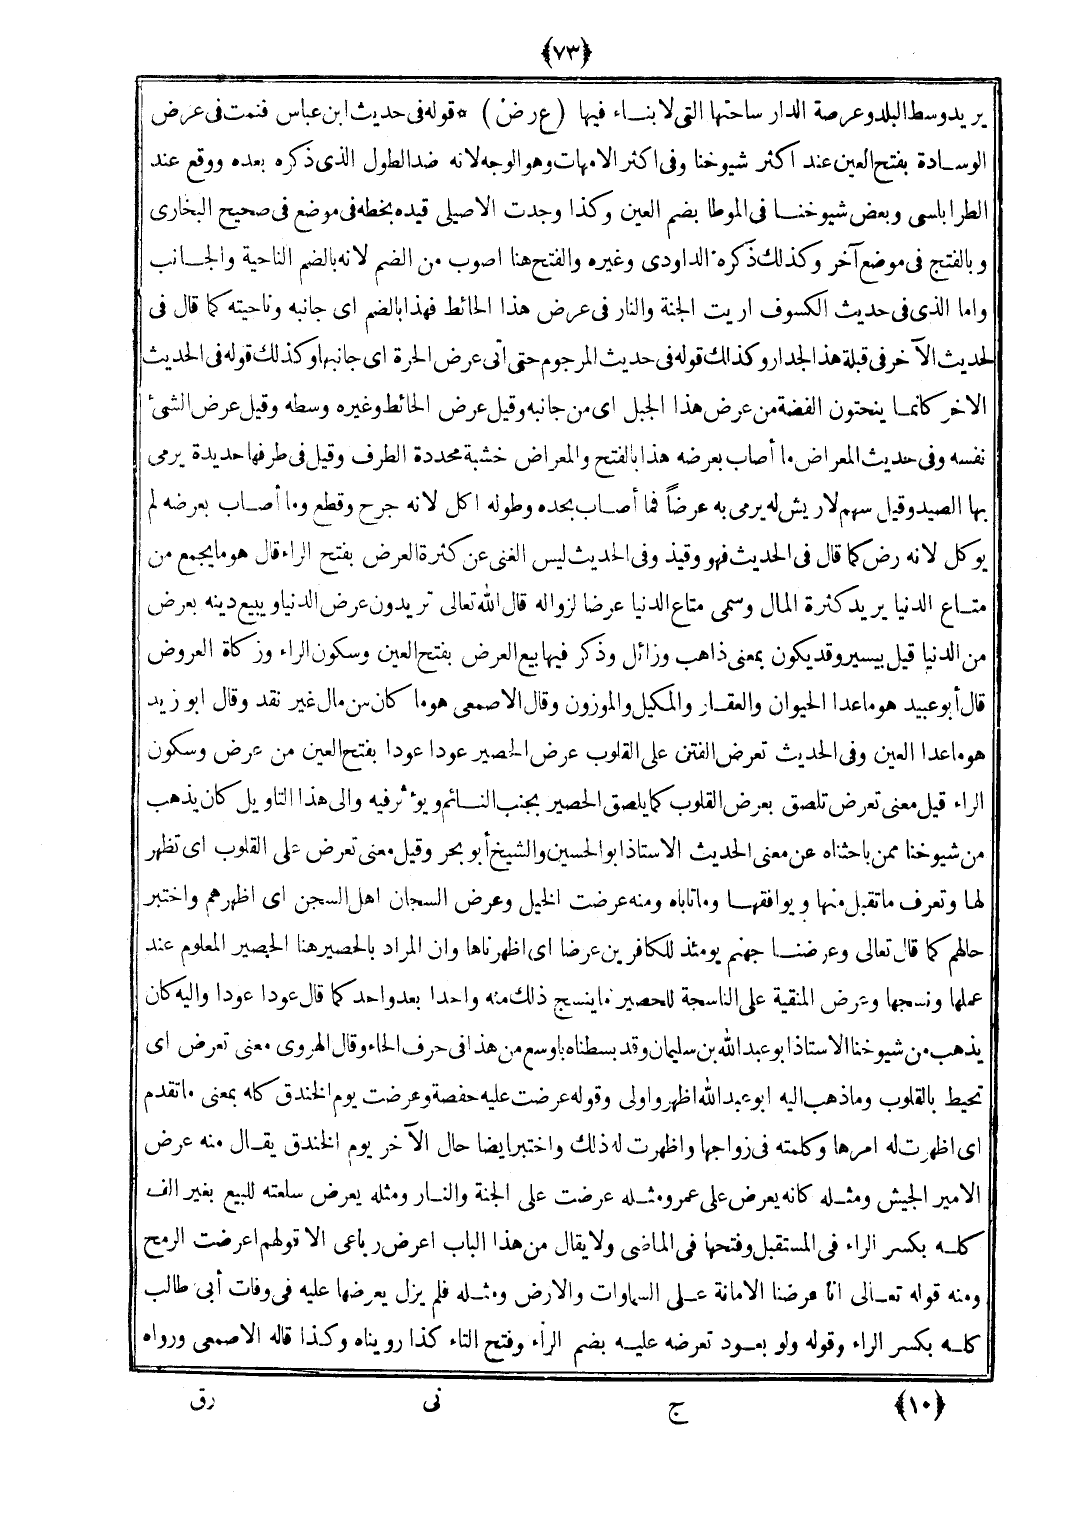 ﴿٧٣﴾
يريد وسط البلد وعرصة الدار ساحتها التى لا بناء فيها (ع رض) * قوله فى حديث ابن عباس فنمت فى عرض
الوسادة بفتح العين عند اكثر شيوخنا وفى اكثر الامهات وهو الوجه لانه ضد الطول الذى ذكره بعده ووقع عند
الطرابلسى وبعض شيوخنا فى الموطا بضم العين وكذا وجدت الاصيلى قيده بخطه فى موضع فى صحيح البخارى
وبالفتح فى موضع آخر وكذلك ذكره الداودى وغيره والفتح هنا اصوب من الضم لانه بالضم الناحية والجانب
واما الذى فى حديث الكسوف اريت الجنة والنار فى عرض هذا الحائط فهذا بالضم اى جانبه وناحيته كما قال فى
لحديث الآخر فى قبلة هذا الجدار وكذلك قوله فى حديث المرجوم حتى اتى عرض الحرة اى جانبها وكذلك قوله فى الحديث
الاخر كانما ينحتون الفضة من عرض هذا الجبل اى من جانبه وقيل عرض الحائط وغيره وسطه وقيل عرض الشئ
نفسه وفى حديث المعراض ما أصاب بعرضه هذا بالفتح والمعراض خشبة محددة الطرف وقيل فى طرفها حديدة يرمى
بها الصيد وقيل سهم لا ريش له يرمى به عرضاً فما أصاب بحده وطوله اكل لانه جرح وقطع وما أصاب بعرضه لم
يوكل لانه رض كما قال فى الحديث فهو وقيذ وفى الحديث ليس الغنى عن كثرة العرض بفتح الراء قال هو ما يجمع من
متاع الدنيا يريد كثرة المال وسمى متاع الدنيا عرضا لزواله قال الله تعالى تريدون عرض الدنيا ويبيع دينه بعرض
من الدنيا قيل بيسير وقد يكون بمعنى ذاهب وزائل وذكر فيها بيع العرض بفتح العين وسكون الراء وزكاة العروض
قال أبو عبيد هو ما عدا الحيوان والعقار والمكيل والموزون وقال الاصمعى هو ما كان من مال غير نقد وقال ابو زيد
هو ما عدا العين وفى الحديث تعرض الفتن على القلوب عرض الحصير عودا عودا بفتح العين من عرض وسكون
الراء قيل معنى تعرض تلصق بعرض القلوب كما يلصق الحصير بجنب النائم ويؤثر فيه والى هذا التاويل كان يذهب
من شيوخنا ممن باحثناه عن معنى الحديث الاستاذ ابو الحسين والشيخ أبو بحر وقيل معنى تعرض على القلوب اى تظهر
لها وتعرف ما تقبل منها ويوافقها وما تاباه ومنه عرضت الخيل وعرض السجان اهل السجن اى اظهرهم واختبر
حالهم كما قال تعالى وعرضنا جهنم يومئذ للكافرين عرضا اى اظهرناها وان المراد بالحصير هنا الحصير المعلوم عند
عملها ونسجها وعرض المنقية على الناسجة للحصير ما ينسج ذلك منه واحدا بعد واحد كما قال عودا عودا واليه كان
يذهب من شيوخنا الاستاذ ابو عبد الله بن سليمان وقد بسطناه باوسع من هذا فى حرف الحاء وقال الهروى معنى تعرض اى
تحيط بالقلوب وما ذهب اليه ابو عبد الله اظهر واولى وقوله عرضت عليه حفصة وعرضت يوم الخندق كله بمعنى ما تقدم
اى اظهرت له امرها وكلمته فى زواجها واظهرت له ذلك واختبر ايضا حال الآخر يوم الخندق يقال منه عرض
الامير الجيش ومثله كانه يعرض على عمر ومثله عرضت على الجنة والنار ومثله يعرض سلعته للبيع بغير الف
كله بكسر الراء فى المستقبل وفتحها فى الماضى ولا يقال من هذا الباب اعرض رباعى الا قولهم اعرضت الرمح
ومنه قوله تعالى انا عرضنا الامانة على السماوات والارض ومثله فلم يزل يعرضها عليه فى وفات أبى طالب
كله بكسر الراء وقوله ولو بعود تعرضه عليه بضم الراء وفتح التاء كذا رويناه وكذا قاله الاصمعى ورواه
﴿١٠﴾ ج نى رق